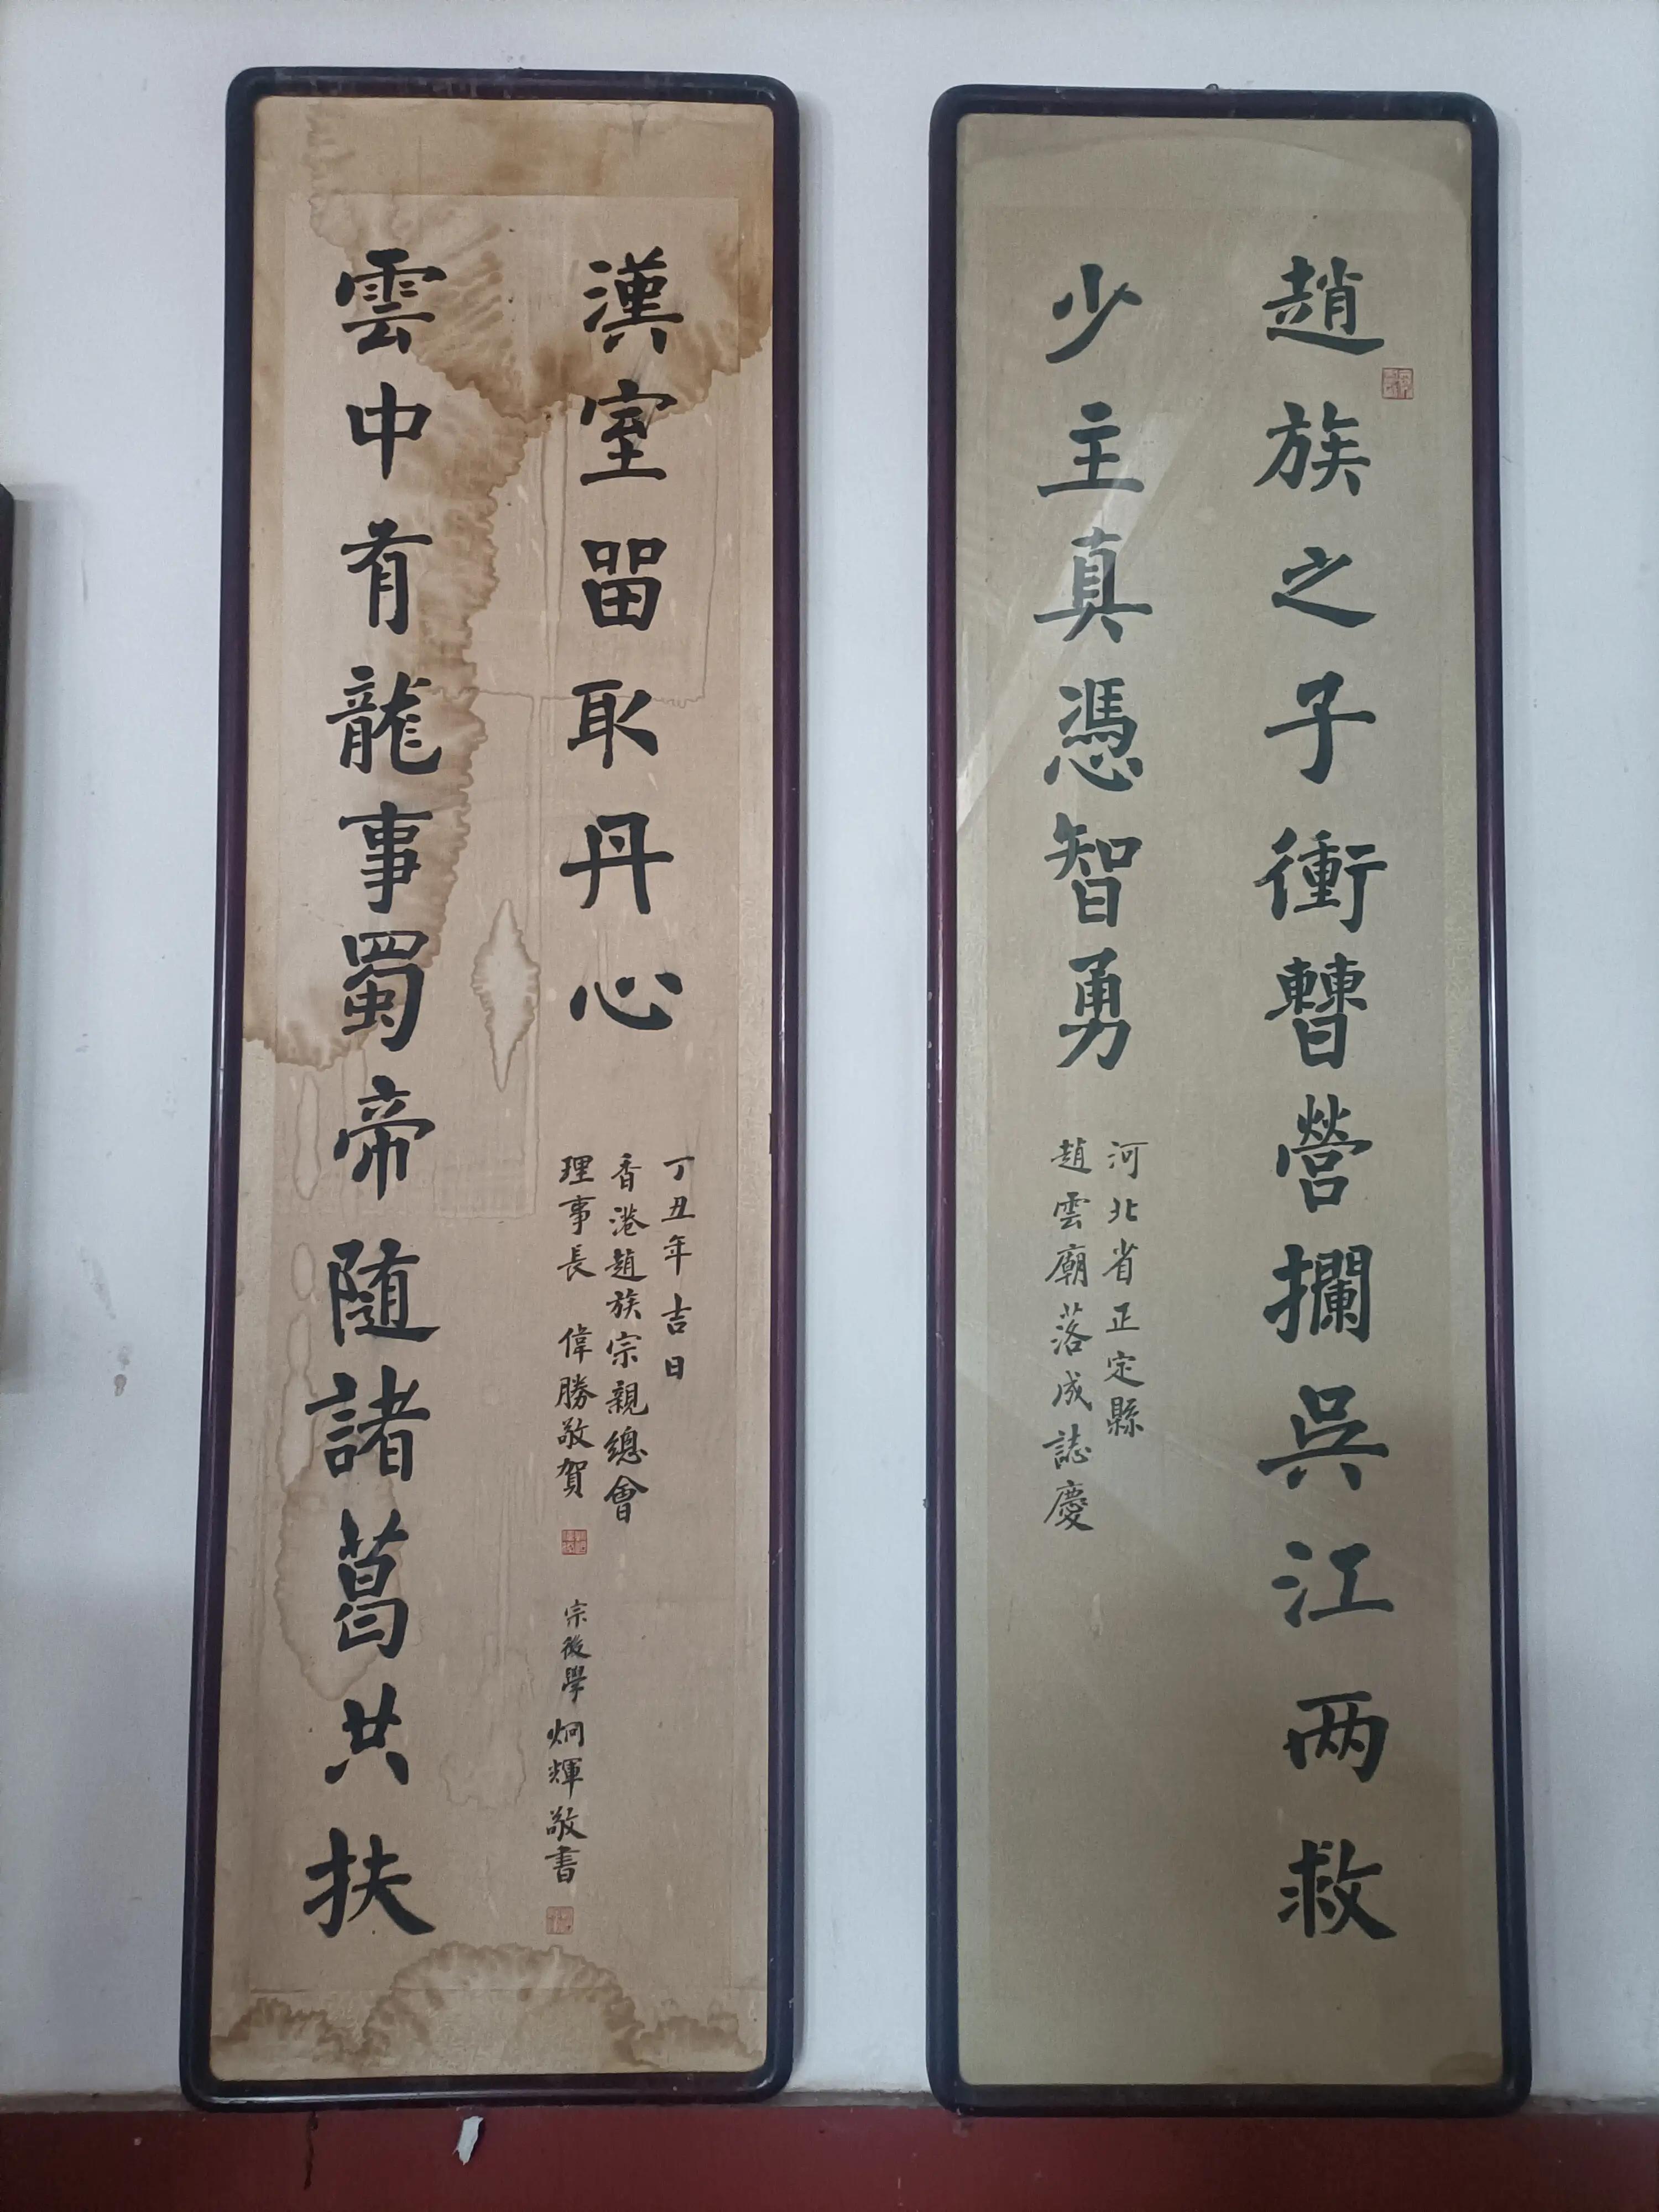 趙族之子衝曹營攔吳江两救
少主真憑智勇
河北省正定縣
趙雲廟落成誌慶
雲中有龍事蜀帝随諸葛共扶
漢室留取丹心
丁丑年吉日
香港趙族宗親總會
理事長 偉勝敬賀
宗後學炯輝敬書